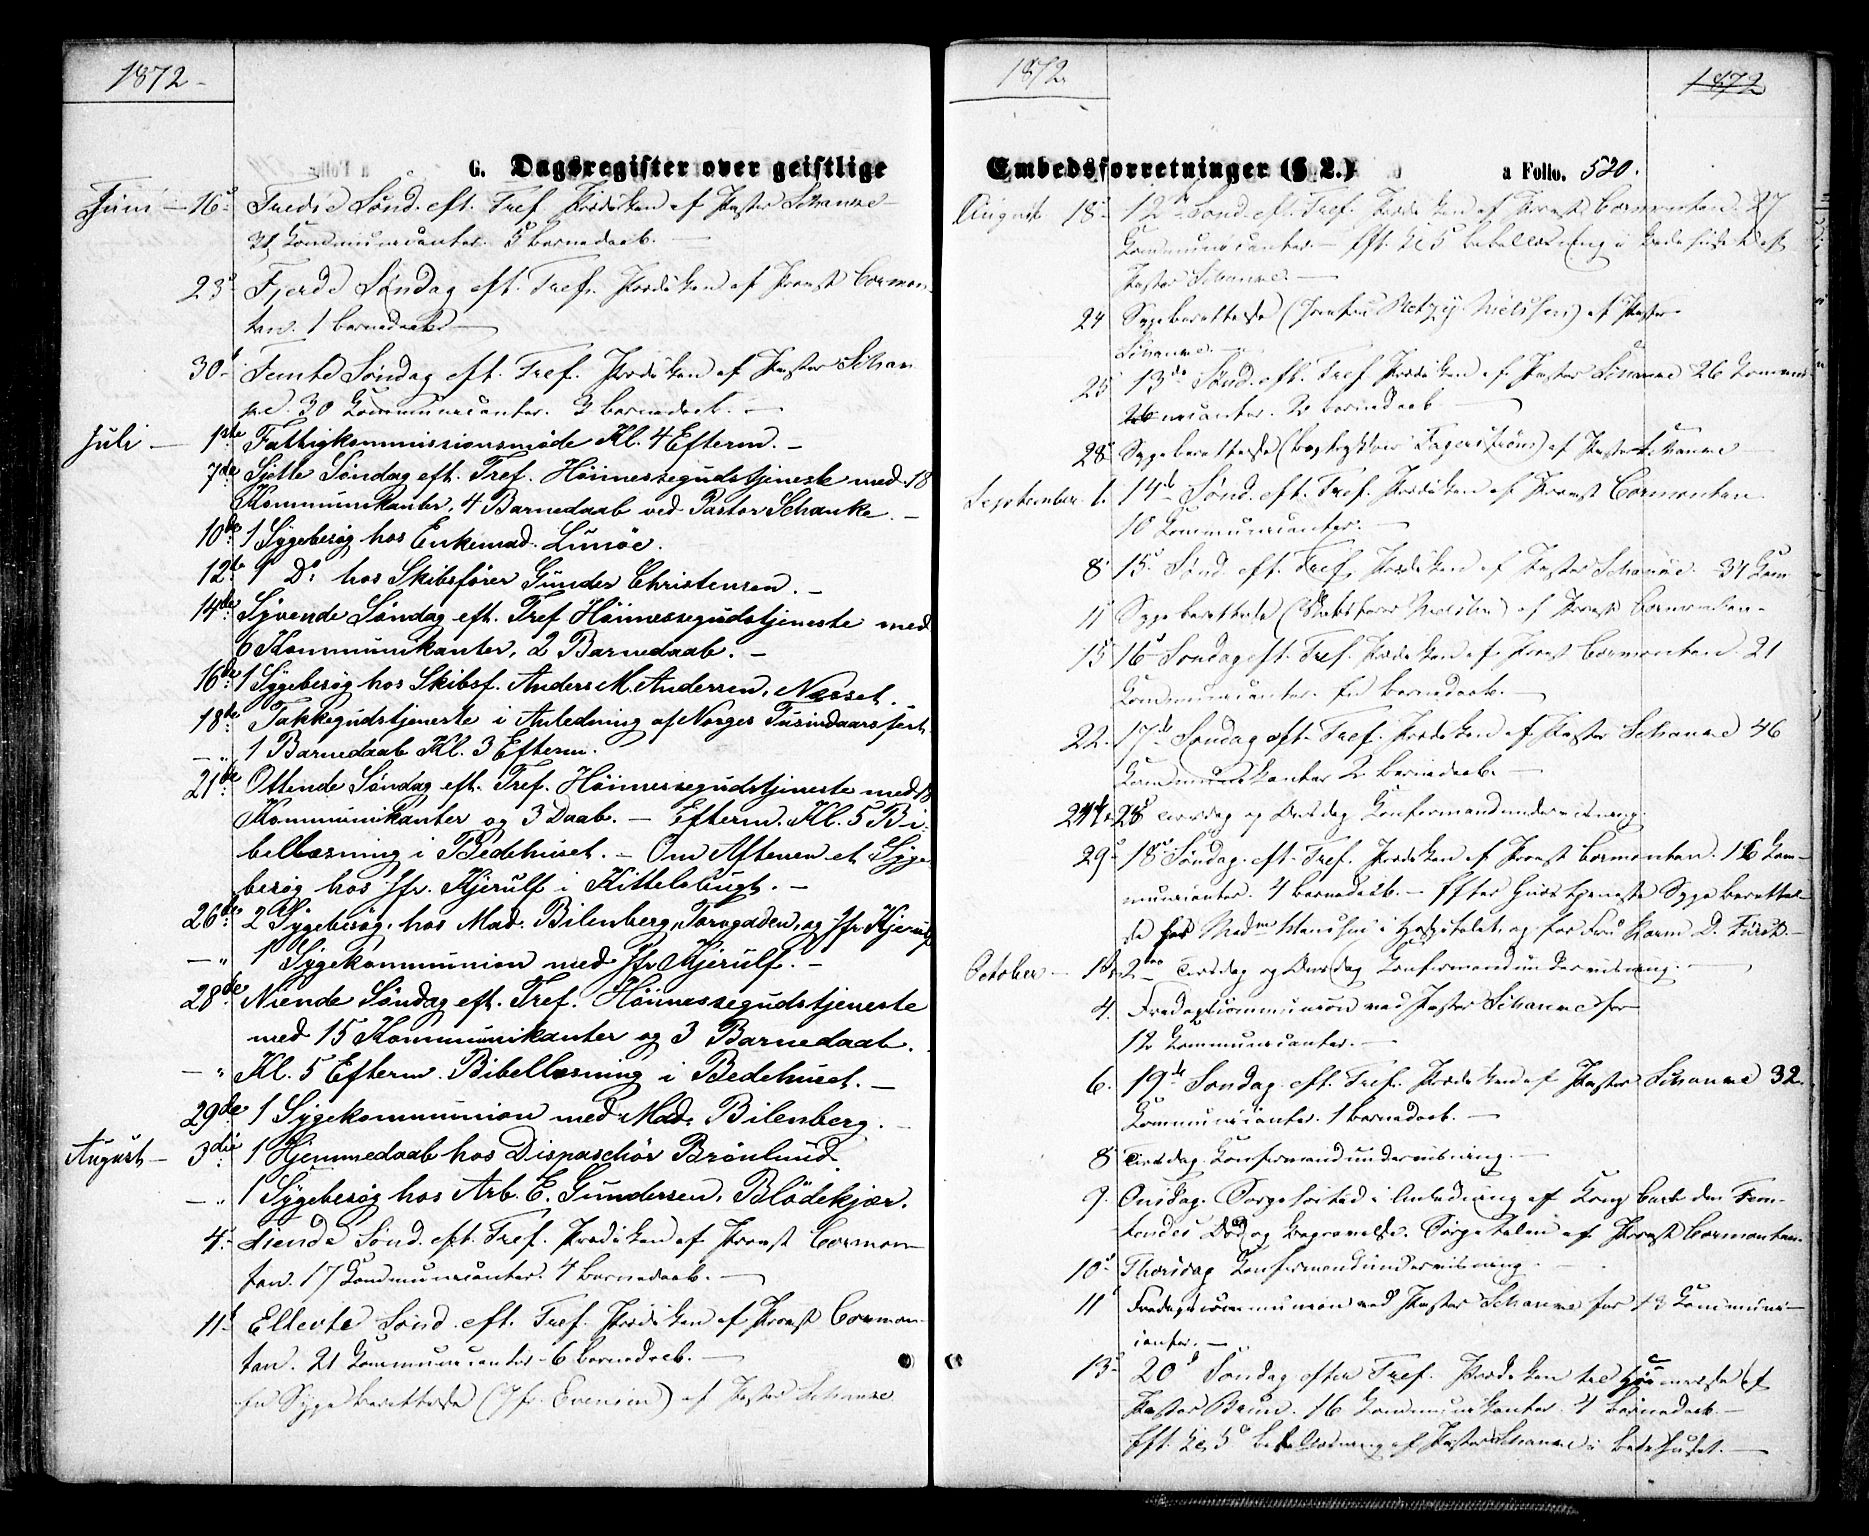 1872
G. Dagsregister over geistlige
Juni – 16d Tredie Sønd. eft. Tref. Prædiken af Pastor Schanke
31 Communicanter. 3 Barnedaab. –
23d Fjerde Søndag eft. Tref. Prædiken af Provst Cormon-
tan. 1 Barnedaab –
30t Femte Søndag eft. Tref. Prædiken af Pastor Schan
ke. 30 Communicanter. 3 Barnedaab. –
Juli – 1ste Fattigkommissionsmøde Kl. 4 Efterm. –
7de Sjette Søndag eft. Tref. Høimessegudstjeneste med 18
Kommunikanter, 4 Barnedaab ved Pastor Schanke. –
10de 1 Sygebesøg hos Enkemad. Lunöe.
12te 1 Do hos Skibsfører Gunder Christensen. –
14de Syvende Søndag eft. Tref Høimessegudstjeneste med
6 Kommunikanter, 2 Barnedaab. –
16de 1 Sygebesøg hos Skibsf. Anders M. Andersen, Næset.
18de Takkegudstjeneste i Anledning af Norges Tusindaarsfest
– „ 1 Barnedaab Kl. 3 Efterm.
21de Ottende Søndag eft. Tref. Høimessegudstjeneste med 18
Kommunikanter og 3 Daab. – Efterm. Kl. 5 Bi-
bellæsning i Bedehuset. – Om Aftenen et Syge-
besøg hos Jfr. Kjerulf i Kittelsbugt. –
26de 2 Sygebesøg, hos Mad. Bilenberg, Torvgaden, og Jfr. Kjerulf
– „ 1 Sygekommunion med Jfr Kjerulf. –
28de Niende Søndag eft. Tref. Høimessegudstjeneste
med 15 Kommunikanter og 3 Barnedaab.
– „ Kl. 5 Efterm. Bibellæsning i Bedehuset. –
29de 1 Sygekommunion med Mad. Bilenberg. –
August – 3die 1 Hjemmedaab hos Dispaschør Brönlund.
– „ 1 Sygebesøg hos Arb. E. Gundersen, Blödekjær.
4. Tiende Sønd. eft. Tref. Prædiken af Provst Cormon-
tan. 17 Communicanter. 4 Barnedaab. –
11t Ellevte Sønd. eft. Tref. Prædiken af Provst Cormon-
tan. 21 Communicanter – 6 Barnedaab. –
En Sygeberettelse (Jfr. Evensen) af Pastor Schanke
1872.
1872
Embedsforretninger (§ 2.)
a Folio. 520.
August 18d 12te Sønd. eft. Tref. Prædiken af Provst Cormontan. 27
Communicanter. – Eft. Kl. 5 Bibellæsning i Bedehuset af
Pastor Schanke. –
24 Sygeberettelse (Jomfru Nielsen) af Pastor
Schanke. –
25 13de Sønd. eft. Tref Prædiken af Pastor Schanke 26 Commu
nicanter. 2 Barnedaab –
28 Sygeberettelse (Fagerstrøm) af Pastor Schanke –
September 1. 14de Sønd. eft. Tref. Prædiken af Provst Cormontan
10 Communicanter. –
8 15d Sønd eft. Tref. Prædiken af Pastor Schanke. 31 Com
11 Sygeberettelse (Skibsfører Nielsen) af Provst Cormontan –
15 16d Søndag eft. Tref. Prædiken af Provst Cormontan. 21
Communicanter. En Barnedaab. –
22. 17de Søndag eft. Tref. Prædiken af Pastor Schanke 46
Communikanter 2 Barnedaab. –
24d, 25d Tirsdag og Onsdag Confirmandundervisning.
29d 18de Søndag eft. Tref. Prædiken af Provst Cormontan. 16 Com-
municanter. 4 Barnedaab. – Efter Gudstjeneste Sygeberettel-
se for Madm i Hospitalet, og for Fru Karen D. Fürst. –
October – 1d, 2den Tirsdag og Onsdag Confirmandundervisning. –
4. Fredagscommunion ved Pastor Schanke for
12 Communicanter. –
6. 19de Søndag eft. Tref. Prædiken af Pastor Schanke 32.
Communicanter. 1 Barnedaab. –
8 Tirsdag Confirmandundervisning. –
9. Onsdag. Sørgehøitid i Anledning af Kong Carl den Fem-
tendes Død og Begravelse. Sørgetalen af Provst Cormontan.
10d Thorsdag Confirmandundervisning.
11 Fredagscommunion ved Pastor Schanke for 13 Communi-
canter. –
13d 20d Søndag efter Tref. Prædiken til Høimesse af
Pastor Brun. 16 Communikanter. 4 Barnedaab. –
Eft. Kl. 5 Bibellæsning af Pastor Schanke i Bedehuset. –